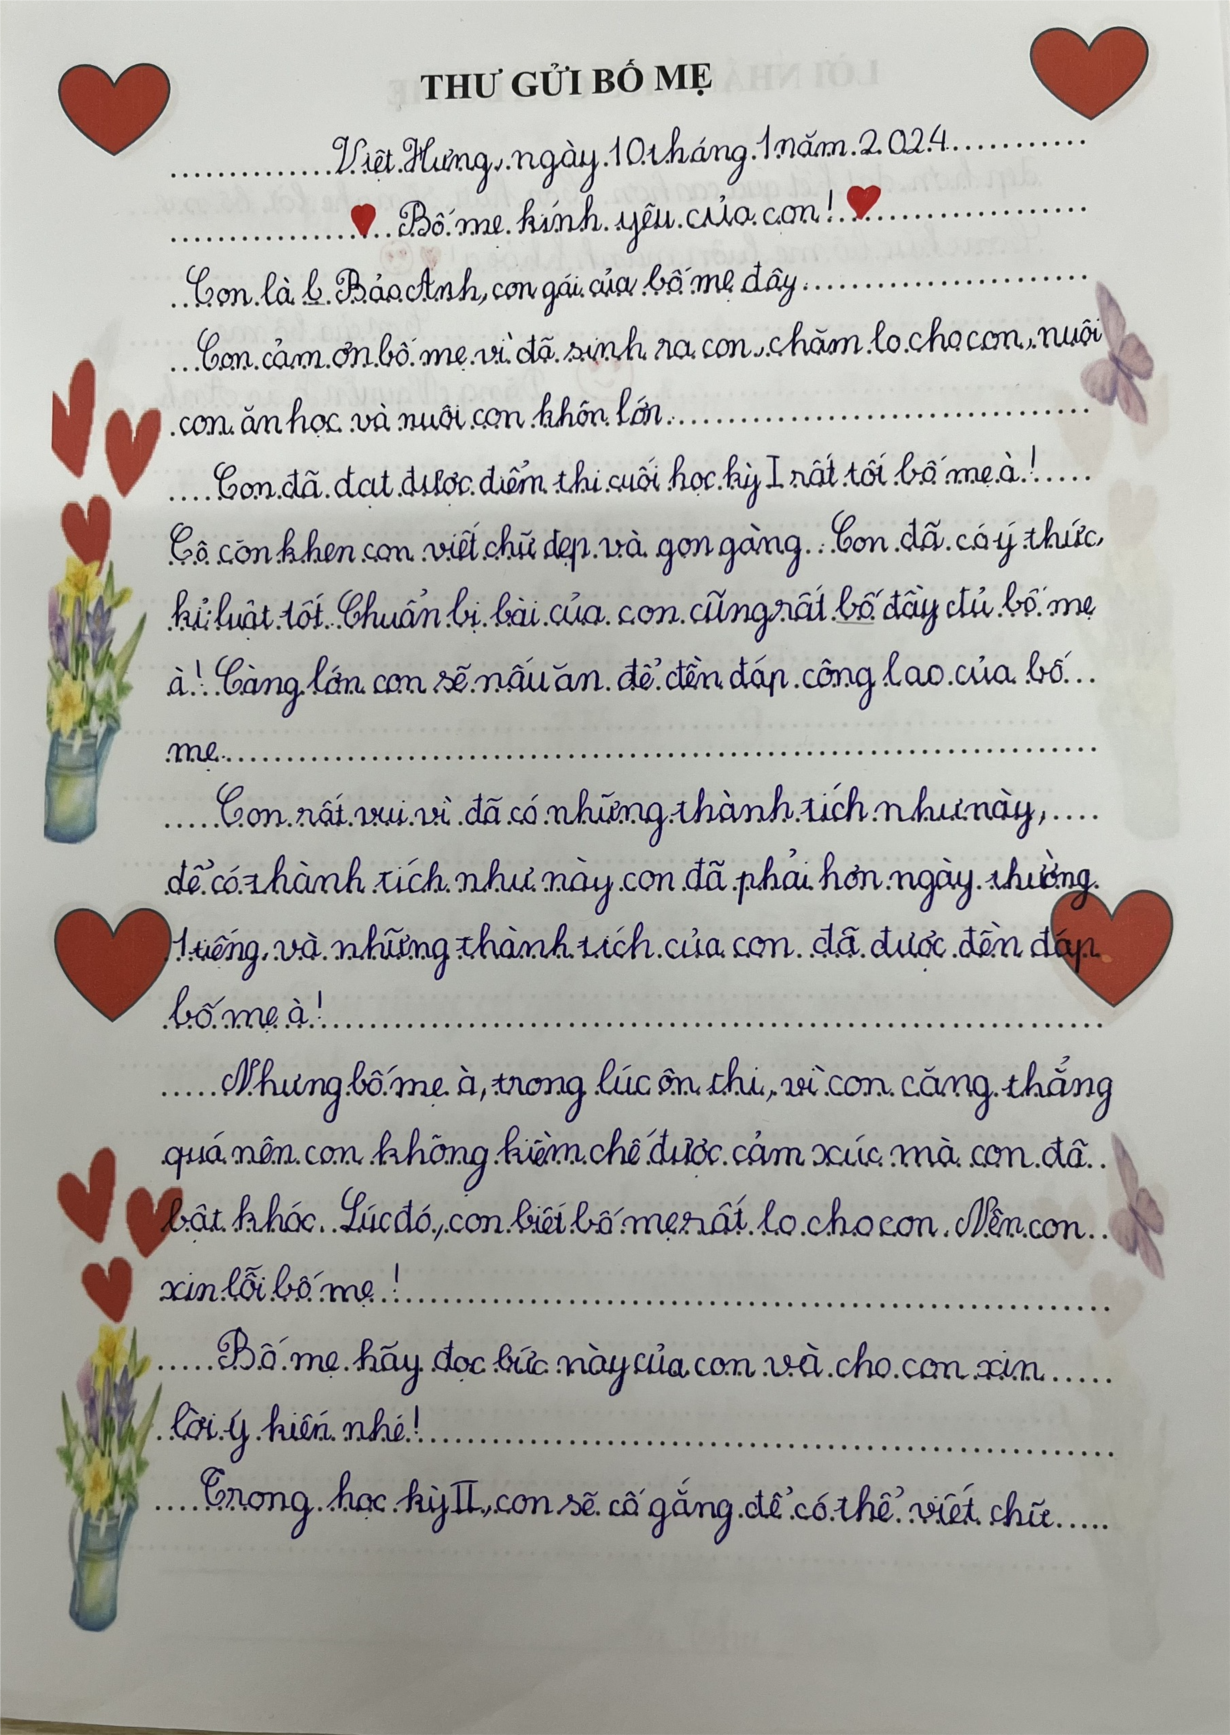 THƯ GỬI BỐ MẸ
Việt Hưng, ngày 10 tháng 1 năm 2024
Bố mẹ kính yêu của con!
Con là b Bảo Anh, con gái của bố mẹ đây
Con cảm ơn bố mẹ vì đã sinh ra con, chăm lo cho con, nuôi
con ăn học và nuôi con khôn lớn.
Con đã đạt được điểm thi cuối học kỳ I rất tốt bố mẹ à!
Cô còn khen con viết chữ đẹp và gọn gàng. Con đã có ý thức,
kỉ luật tốt. Chuẩn bị bài của con cũng rất bố đầy đủ bố mẹ
à! Càng lớn con sẽ nấu ăn để đền đáp công lao của bố
mẹ.
Con rất vui vì đã có những thành tích như này,
để có thành tích như này con đã phải hơn ngày thường
1 tiếng, và những thành tích của con đã được đền đáp
bố mẹ à!
Nhưng bố mẹ à, trong lúc ôn thi, vì con căng thẳng
quá nên con không kiềm chế được cảm xúc mà con đã
bật khóc. Lúc đó, con biết bố mẹ rất lo cho con. Nên con
xin lỗi bố mẹ!
Bố mẹ hãy đọc bức này của con và cho con xin
lời ý kiến nhé!
Trong học kỳ II, con sẽ cố gắng để có thể viết chữ